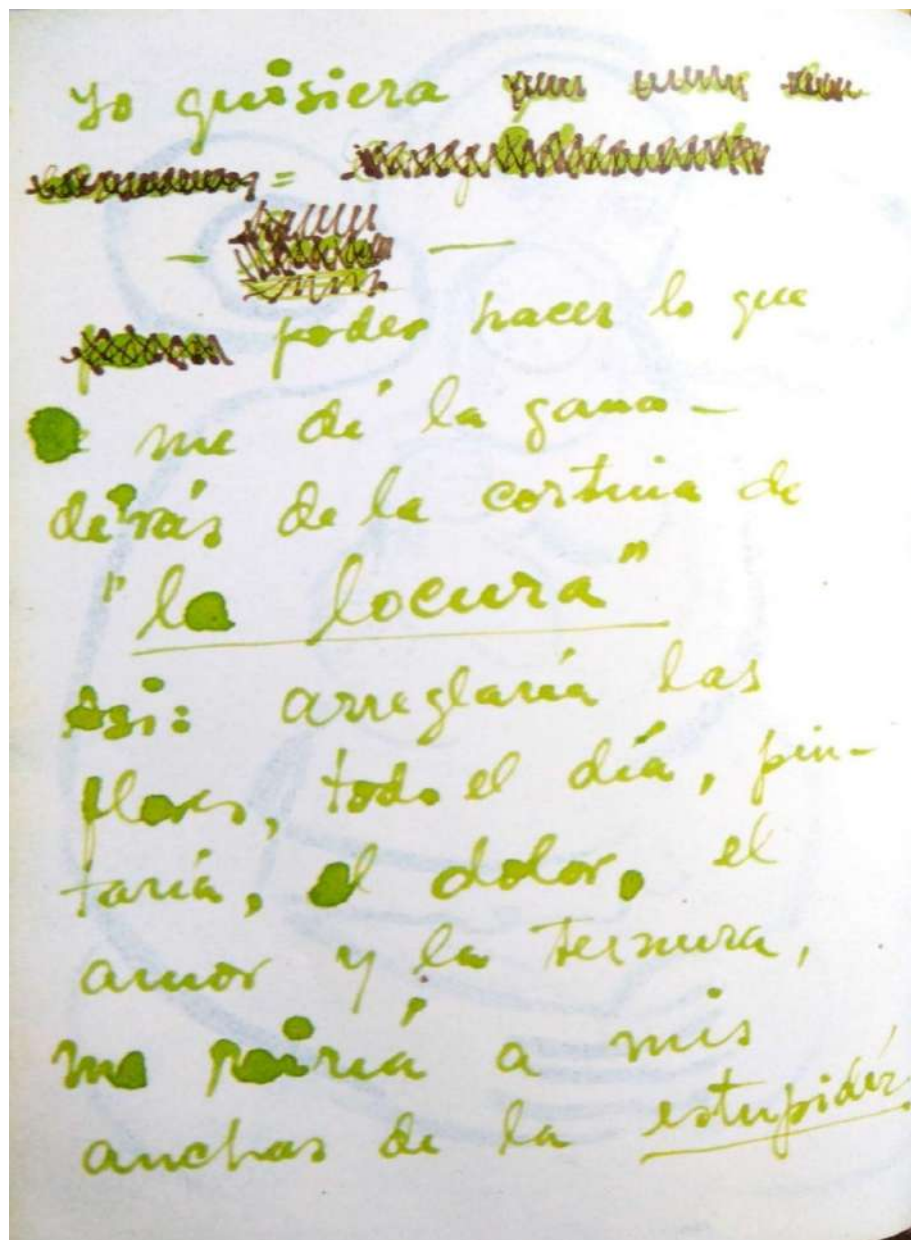 Yo quisiera
=
— —
poder hacer lo que
me dé la gana —
detrás de la cortina de
"la locura"
Asi: arreglaría las
flores, todo el día, pin-
taría, el dolor, el
amor y la ternura,
me reiría a mis
anchas de la estupidéz